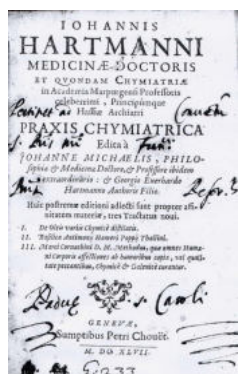 IOHANNIS
HARTMANNI
MEDICINÆ DOCTORIS
ET QVONDAM CHYMIATRIÆ
in Academia Marpurgensi Professoris
celeberrimi, Principúmque
Hassiæ Archiatri
PRAXIS CHYMIATRICA
Edita à
IOHANNE MICHAELIS, PHILO-
sophiæ & Medicinæ Doctore, & Professore ibidem
extraordinario : & Georgio Everhardo
Hartmanno Authoris Filio.
Huic postremæ editioni adiecti sunt propter affi-
nitatem materiæ, tres Tractatus noui.
I. De Oleis variis Chymicè distillatis.
II. Basilica Antimonij Hameri Poppij Thallini.
III. Marci Cornachini D. M. Methodus, qua omnes Huma-
ni corporis affectiones ab humoribus copia, vel quali-
tate peccantibus, Chymicè & Galenicè curantur.
s. Caroli
GENEVÆ,
Sumptibus Petri Chouët.
M. DC XLVII.